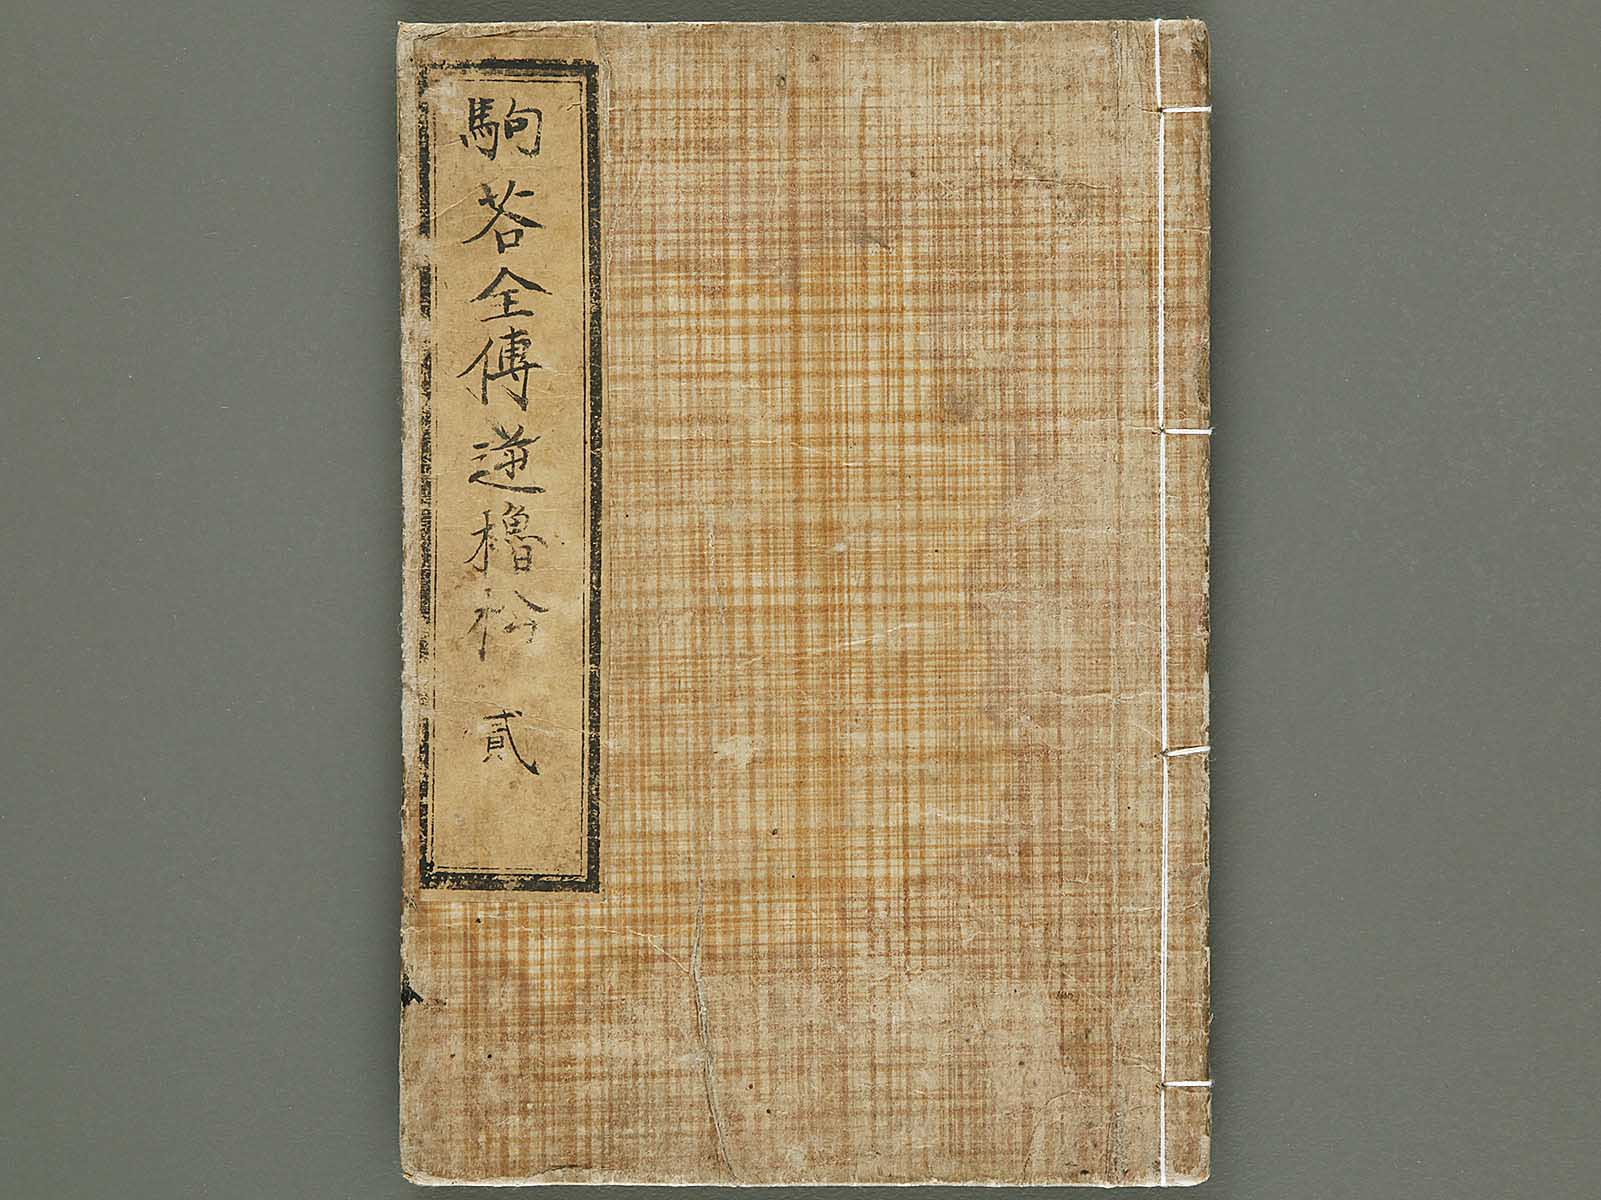 駒若全傳逆櫓松 貳